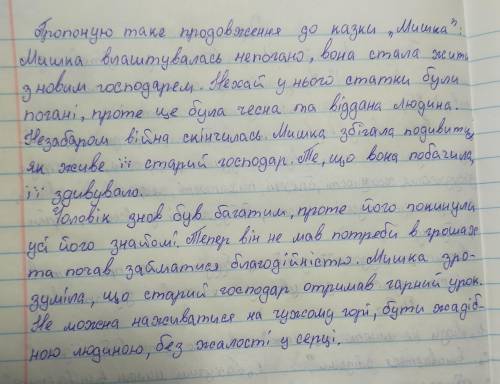 Пропоную таке продовження до казки „Мишка":
Мишка влаштувалась непогано, вона стала жити
з новим господарем. Нехай у нього статки були
погані, проте це була чесна та віддана людина.
Незабаром війна скінчилась. Мишка збігала подивитись,
як живе її старий господар. Те, що вона побачила,
її здивувало.
Чоловік знов був багатим, проте його покинули
усі його знайомі. Тепер він не мав потреби в грошах
та почав займатися благодійністю. Мишка зро-
зуміла, що старий господар отримав гарний урок.
Не можна наживатися на чужому горі, бути жадіб-
ною людиною, без жалості у серці.